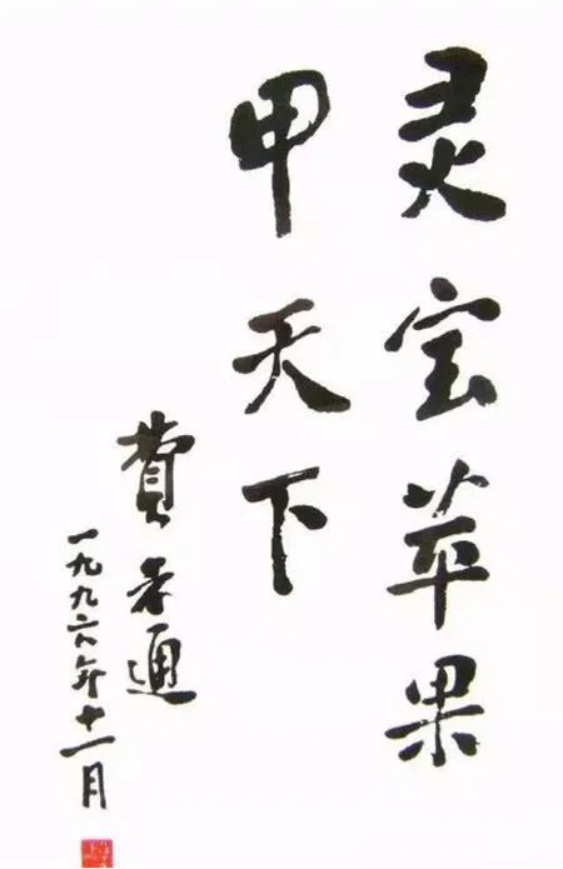 灵宝苹果
甲天下
費孝通
一九九六年十一月